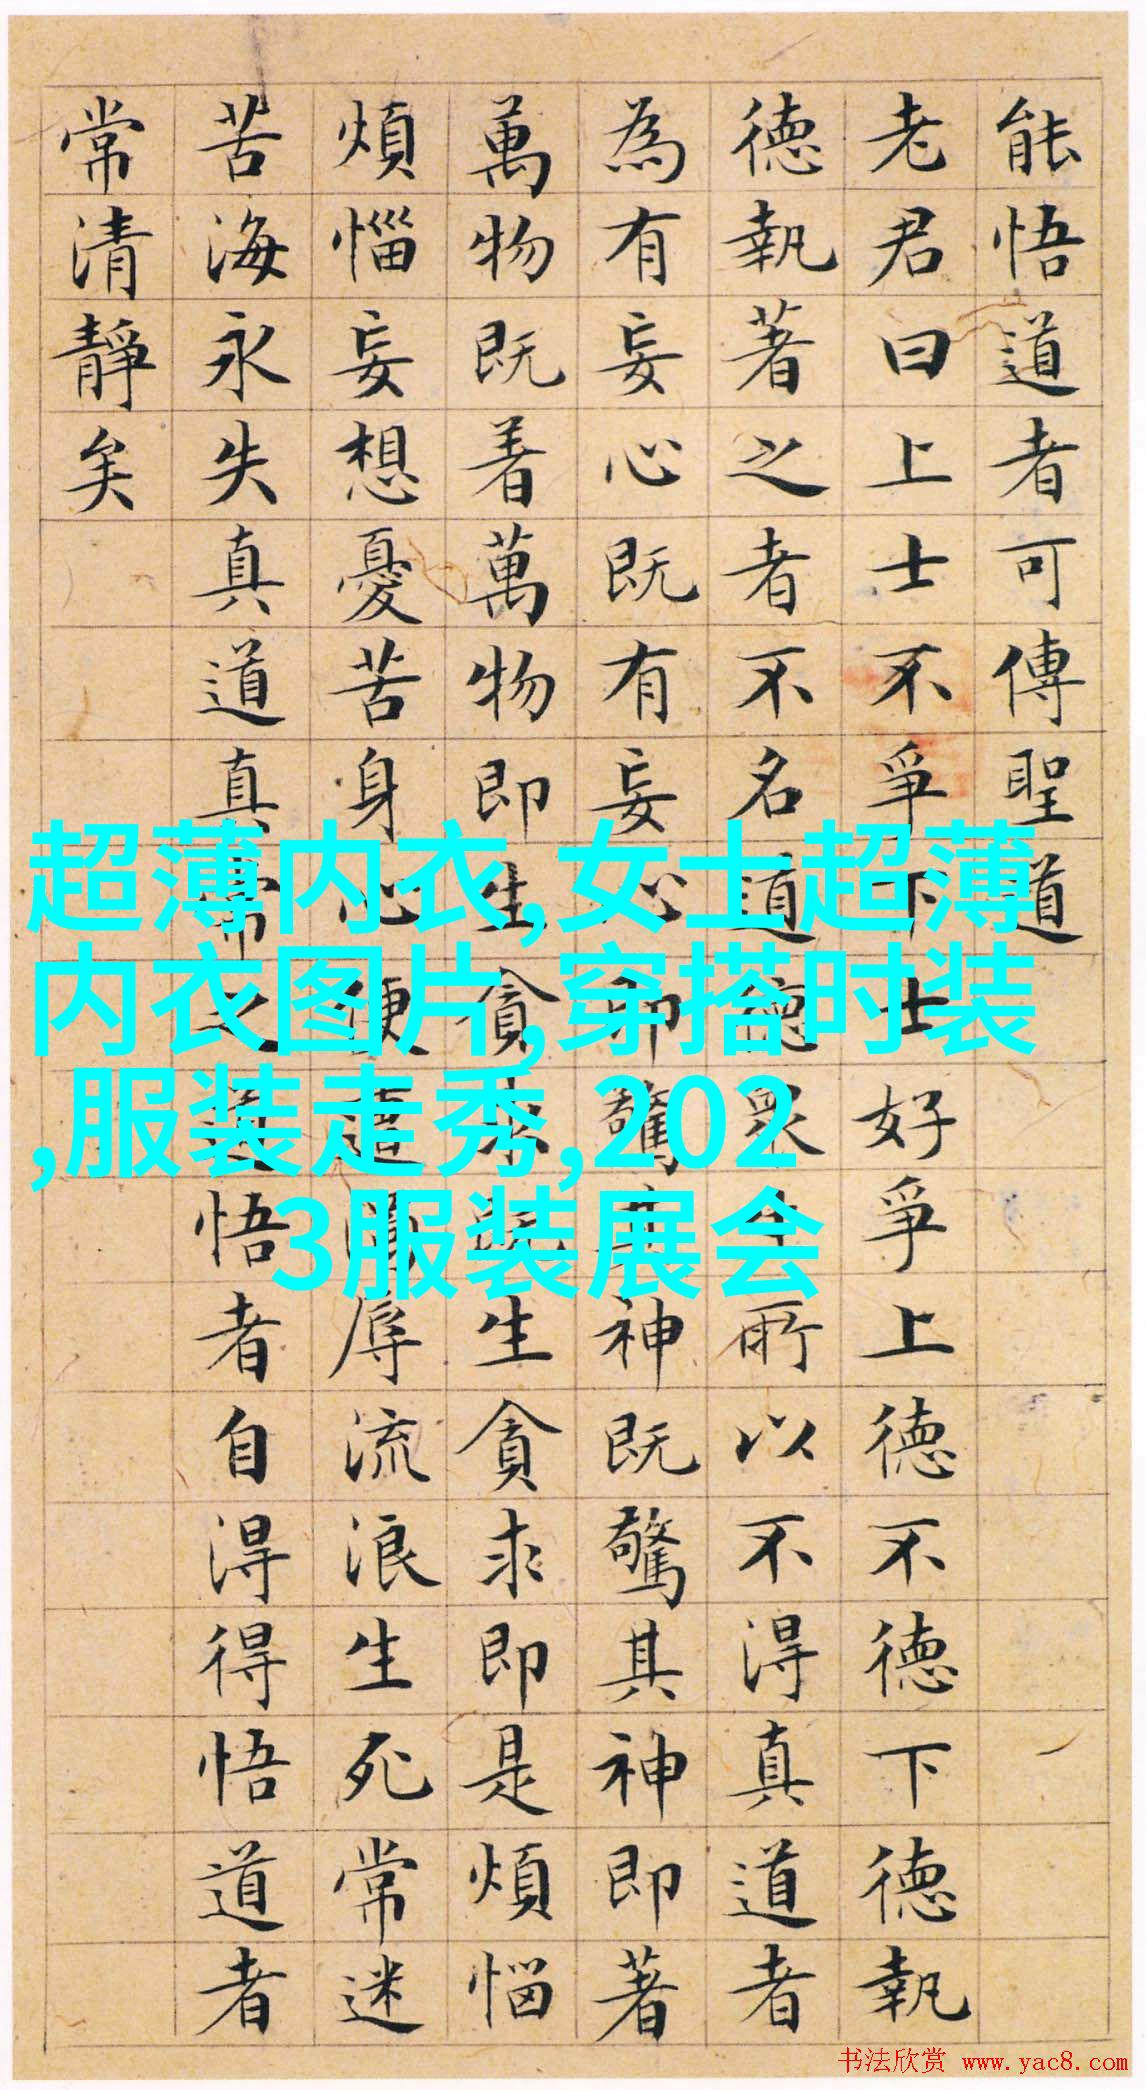 能悟道者可傳聖道
老君曰上士不爭下士好爭上德不德下德執
德執著之者不名道德眾生所以不得真道者
為有妄心既有妄心即驚其神既驚其神即著
萬物既着萬物即生貪求既生貪求即是煩惱
煩惱妄想憂苦身心便遭濁辱流浪生死常迷
苦海永失真道真常之道悟者自淂得悟道者
常清靜矣
超薄内衣,女士超薄
内衣图片,穿搭时装
,服装走秀,202
3服装展会
书法欣赏 www.yac8.com